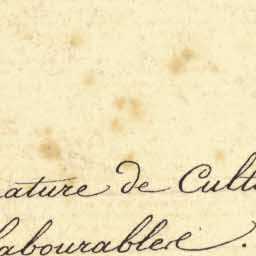 nature de Cult
labourablere.